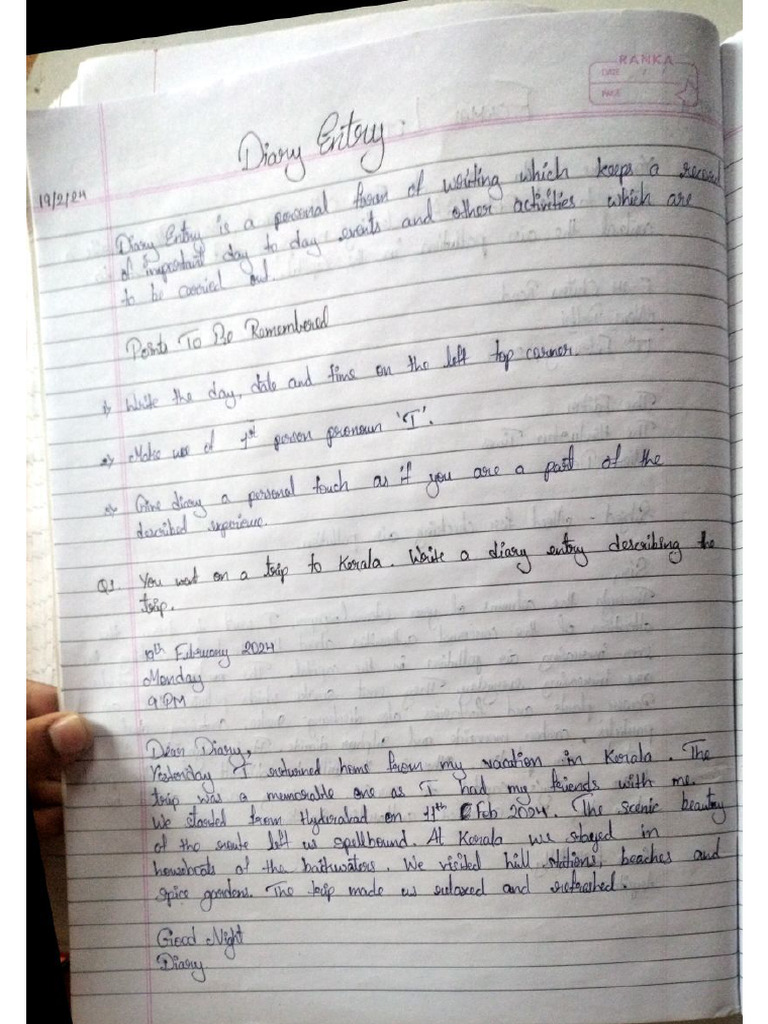 RANKA
DATE / /
PAGE
Diary Entry:
19/2/24
Diary Entry is a personal form of writing which keeps a record
of important day to day events and other activities which are
to be carried out.
Points To Be Remembered
1) Write the day, date and time on the left top corner.
2) Make use of 1st person pronoun 'I'.
3) Give diary a personal touch as if you are a part of the
described experience.
Q1. You went on a trip to Kerala. Write a diary entry describing the
trip.
19th February 2024
Monday
9 PM
Dear Diary,
Yesterday I returned home from my vacation in Kerala. The
trip was a memorable one as I had my friends with me.
We started from Hyderabad on 11th Feb 2024. The scenic beauty
of the route left us spellbound. At Kerala we stayed in
houseboats of the backwaters. We visited hill stations, beaches and
spice gardens. The trip made us relaxed and refreshed.
Good Night
Diary